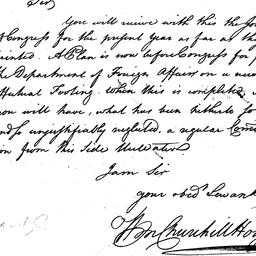 Sir
You will receive with this the Jo
Congress for the present Year as far as th
rinted. A Plan is now before Congress for p
the Department of Foreign Affairs on a
Footing. When this is compleated
on will have, what has been hitherto to
unjustifiably neglected, a regular
on from this side the water
I am Sir
your obedt Servant
Wm Churchill Ho